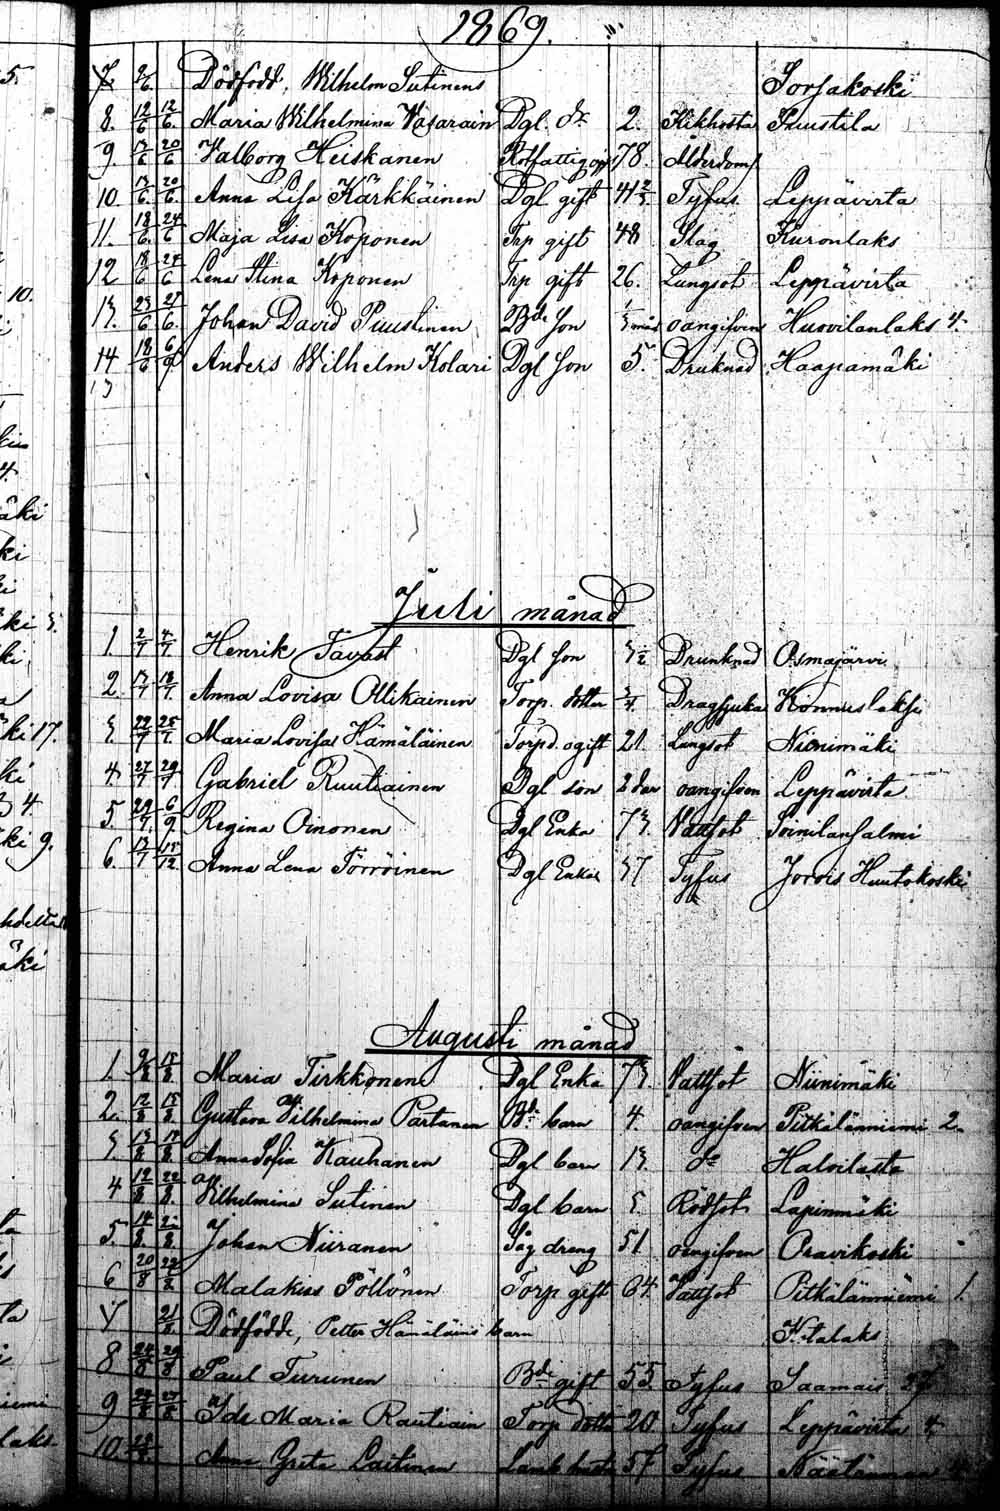 1869.
7. Dödfödd, Wilhelm Sutinens Sorsakoski
8. 12/6 12/6. Maria Wilhelmina Vasarain Dgl. dr 2. Kikhosta Puustila
9. 13/6 20/6 Valborg Heiskanen Rotfattighj 78. Ålderdom
10. 13/6. 20/6. Anna Lisa Kärkkäinen Dgl gift 41 Tyfus Leppävirta
11. 18/6. 24/6 Maja Lisa Koponen Trp gift 48 Slag Kuronlaks
12 18/6 24/6 Lena Stina Koponen Trp gift 26. Lungsot Leppävirta
13. 23/6 27/6. Johan David Puustinen Bde son oangifven Huovilanlaks 4.
14 18/6 Anders Wilhelm Kolari Dgl son 5. Druknad Haapamäki
Juli månad
1 2/7 4/7 Henrik Tavast Dgl son 3 1/2 Drunknad Osmajärvi
2. 13/7 18/7. Anna Lovisa Ollikainen Torp. dotter 3/4 Dragsjuka Konnuslaksi
3. 22/7 25/7. Maria Lovisa Hämäläinen Torpd. ogift 21. Lungsot Niinimäki
4. 27/7 29/7 Gabriel Ruutiainen Dgl son 2 dar oangifven Leppävirta
5 29/7. 6/9. Regina Oinonen Dgl Enka 73. Vattsot Soinilansalmi
6. 13/7 15/12. Anna Lena Törröinen Dgl Enka 37 Tyfus Jorois Huutokoski
Augusti månad
1. 9/8 15/8. Maria Tirkkonen Dgl Enka 73. Vattsot Niinimäki
2. 12/8 15/8. Gustava Vilhelmina Partanen Bde barn 4. oangifven Pitkälänniemi 2.
3. 13/8. Anna Sofia Kauhanen Dgl barn 13. do Halvilasta
4 12/8 22/8. Vilhelmina Sutinen Dgl barn 3. Rödsot Lapinmäki
5. 14/8. Johan Niiranen Såg dreng 51 oangifven Osavikoski
6 20/8 22/8 Malakias Pöllönen Torp gift 64. Vattsot Pitkälänniemi 1.
7 21/8. Dödfödde, Petter Hämäläins barn
8 24/8 29/8 Paul Turunen Bde gift 55 Tyfus Saamais 27
9 Ida Maria Rautiain Torp dotter 20 Tyfus Leppävirta 4
10. Anna Greta Laitinen 57 Tyfus